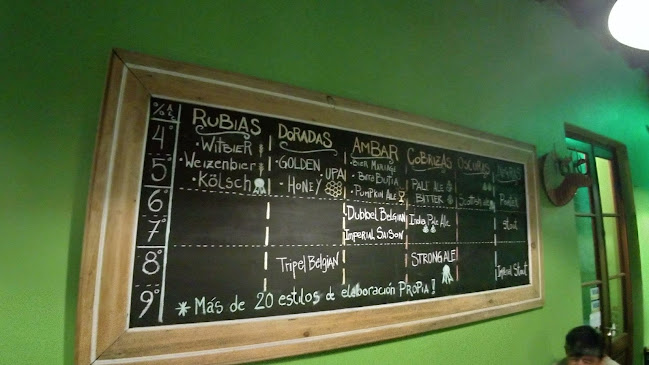 % Alc
4°
5°
6°
7°
8°
9°
RUBIAS
• WITBIER
• Weizenbier
• Kölsch
DORADAS
• GOLDEN
UPA!
• HONEY
Tripel Belgian
AMBAR
• PUMPKIN ALE
• Dubbel Belgian
Imperial SAISON
COBRIZAS
PALE ALE
BITTER
India Pale Ale
STRONG ALE
OSCURAS
Scottish Ale
NEGRAS
Stout
Imperial Stout
* Más de 20 estilos de elaboración PROPIA!